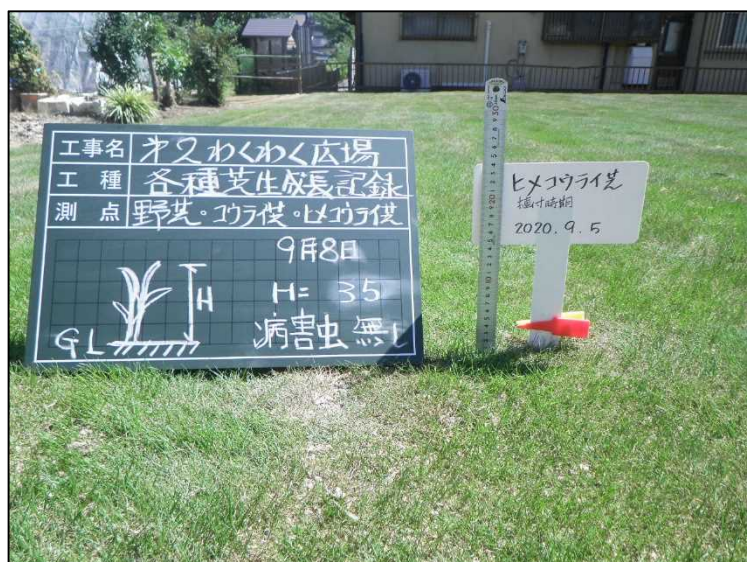 工事名 才2わくわく広場
工種 各種芝生成長記録
測点 野芝・コウライ芝・ヒメコウライ芝
9月8日
H
H= 35
GL
病害虫無し
ヒメコウライ芝
植付時期
2020.9.5